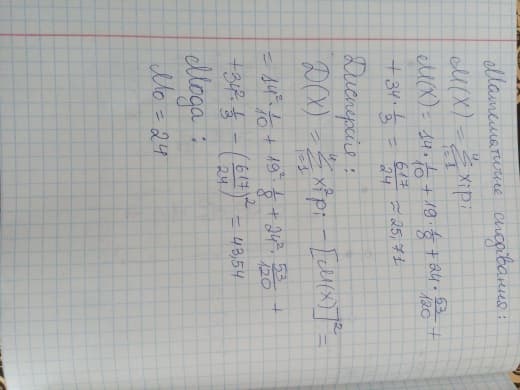 Математичне сподівання:
M(X) = ⁴Σᵢ₌₁ xᵢpᵢ
M(X) = 14·1/10 + 19·1/8 + 24·53/120 +
+ 34·1/3 = 617/24 ≈ 25,71
Дисперсія:
D(X) = ⁴Σᵢ₌₁ xᵢ²pᵢ − [M(X)]² =
= 14²·1/10 + 19²·1/8 + 24²·53/120 +
+ 34²·1/3 − (617/24)² = 43,54
Мода:
Mo = 24